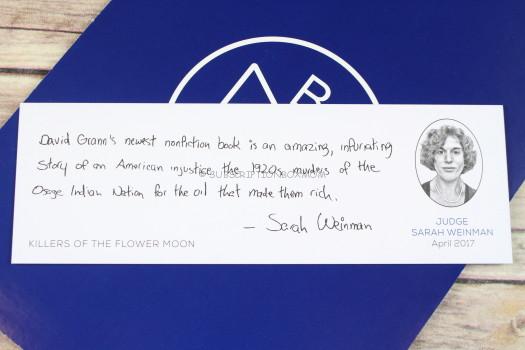 A B
David Grann's newest nonfiction book is an amazing, infuriating
story of an American injustice, the 1920s murders of the
© SUBSCRIPTIONBOXMOM
Osage Indian Nation for the oil that made them rich.
— Sarah Weinman
KILLERS OF THE FLOWER MOON
JUDGE
SARAH WEINMAN
April 2017